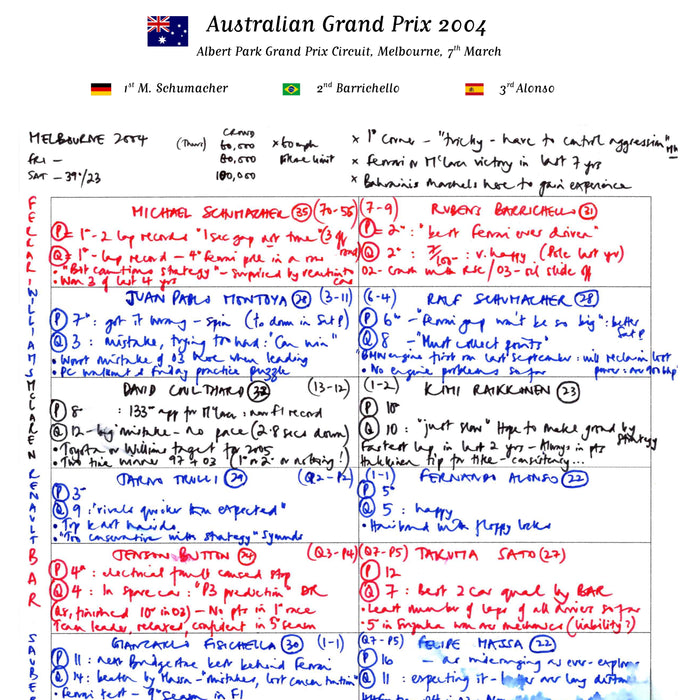 Australian Grand Prix 2004
Albert Park Grand Prix Circuit, Melbourne, 7th March
1st M. Schumacher 2nd Barrichello 3rd Alonso
MELBOURNE 2004 (Thurs) CROWD 60,000 x 60mph x 1st Corner - "tricky - have to control aggression"
FRI - 80,000 x Ferrari or M'Laren victory in last 7 yrs
SAT - 39°/23 100,000 x Bahrainis Marshals here to gain experience
FERRARI
MICHAEL SCHUMACHER (35) (70-56)
P = 1st - 2 lap record "1 sec gap not true"
Q = 1st - lap record - 4th Ferrari pole in a row
"Bit cautious strategy" - surprised by reaction
Won 3 of last 4 yrs
(7-9) RUBENS BARRICHELLO (31)
P = 2nd : "best Ferrari ever driven"
Q 2nd : v. happy (Pole last yr)
02 - Crash with RSC / 03 - oil slide off
WILLIAMS
JUAN PABLO MONTOYA (28) (3-11)
P 7th : got it wrong - spin (to down in Set P)
Q 3 : mistake, trying too hard : "Can win"
Worst mistake of 03 here when leading
PC walkout & Friday practice puzzle
(6-4) RALF SCHUMACHER (28)
P 6th - "Ferrari gap won't be so big" : better Set P
Q 8 - "Must collect points"
BMW engine first on last September : will reclaim lost
No engine problems so far
McLAREN
DAVID COULTHARD (32) (13-12)
P 8th : 133rd app for M'Laren : new F1 record
Q 12 - big mistake - no pace (2.8 secs down)
Toyota or Williams target for 2005
Two time winner 97 & 03 (1st or 2nd or nothing!)
(1-2) KIMI RAIKKONEN (23)
P 10
Q 10 : "just slow" Hope to make ground by strategy
Fastest lap in last 2 yrs - Always in pts
Hakkinen tip for title - consistency...
RENAULT
JARNO TRULLI (29) (Q2-P2)
P 3rd
Q 9 : "rivals quicker than expected"
Top kart
"Too conservative with strategy" Symonds
(1-1) FERNANDO ALONSO (22)
P 5th
Q 5 : happy
Hairband with floppy locks
BAR
JENSON BUTTON (24) (Q3-P4)
P 4th : electrical fault caused stop
Q 4 : In spare car : "P3 prediction" DR
(Qs, finished 10th in 03) - No pts in 1st race
Team leader, relaxed, confident in 5th season
(Q7-P5) TAKUMA SATO (27)
P 12
Q 7 : Best 2 car qual by BAR
Least number of laps of all drivers so far
5th in Suzuka won over mechanics (liability?)
SAUBER
GIANCARLO FISICHELLA (30) (1-1)
P 11 : next Bridgestone best behind Ferrari
Q 14 : beaten by Massa - "mistakes, lost concentration"
Ferrari test - 9th season in F1
(Q7-P5) FELIPE MASSA (22)
P 16
Q 11 : expecting it -